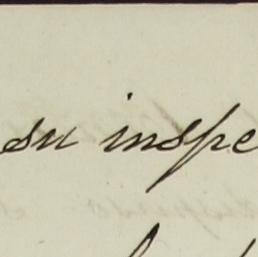 su inspe